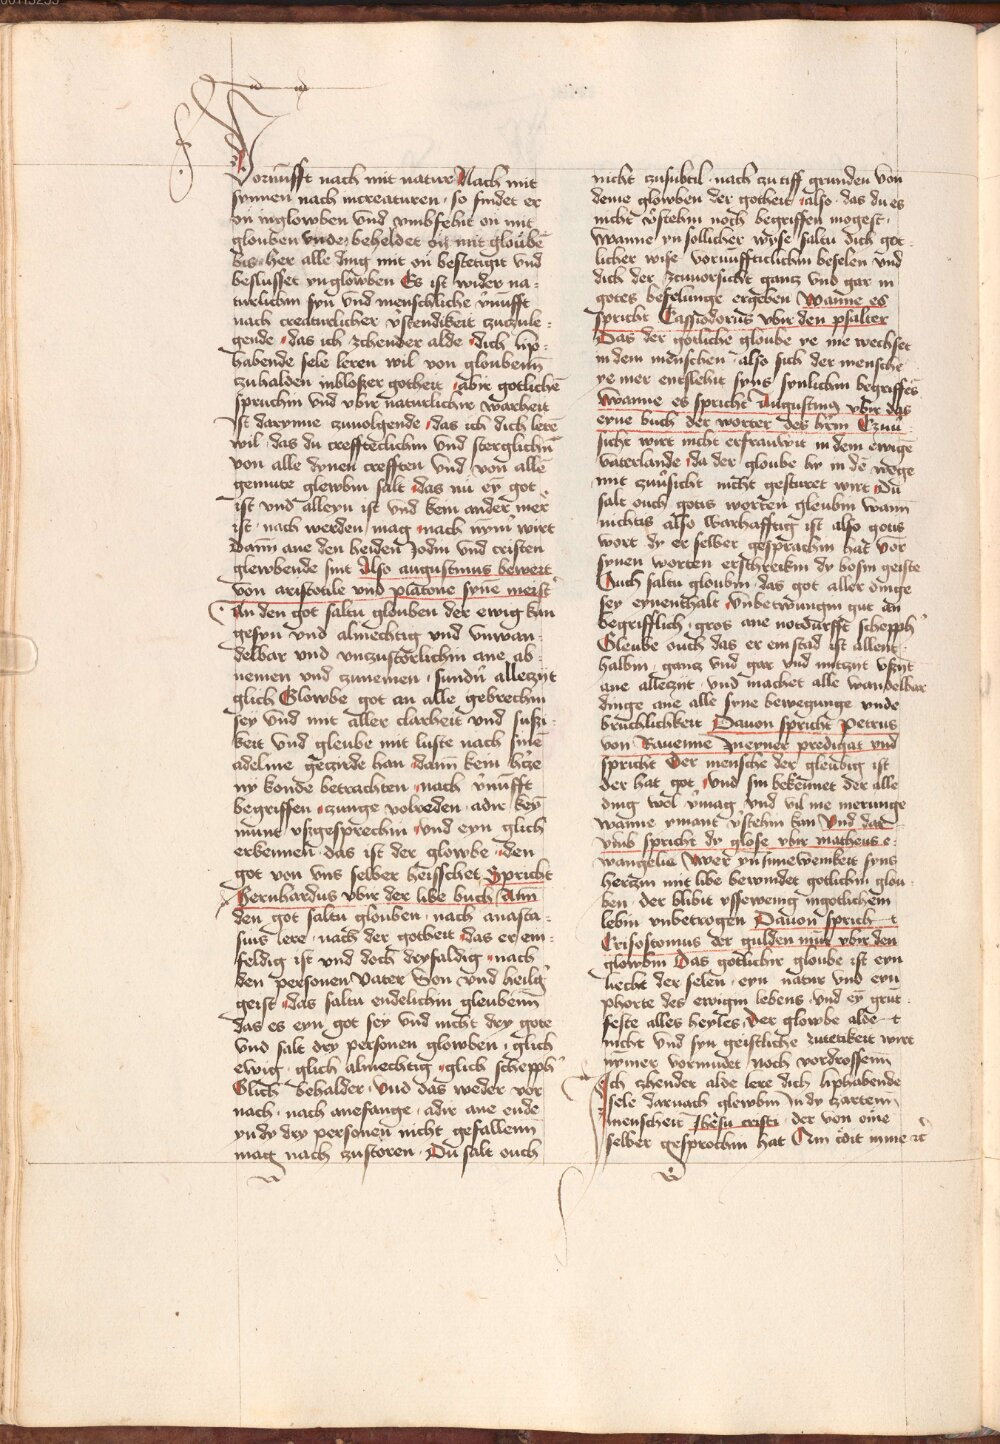 Vornufft nach mit nature Nach mit
synnen nach mcreaturen · so findet er
on inglowben vnd vmbfehit on mit
glouben vnde beheldet on mit gloube
bis her alle ding mit on bestetigit vnd
beslusset yn glowben Es ist wider na-
turlichin syn vnd menschliche v̄nufft
nach creaturlicher v̄stendikeit czuczule-
gende · das ich xchender alde dich lip-
habende sele leren wil von gloubenn
czuhalden inbloszer gotheit · abir gotliche
spruchin vnd vbir naturlichir warheit
Ist darynne czuuolgende · das ich dich lere
wil · das du creffteclichin vnd sterglichin
von alle dynen crefften vnd von alle
gemute glewbin salt das nü eȳ got
ist vnd alleyn ist vnd kein ander mer
ist · nach werden mag nach nym wirt
Dann ane den heiden Jodin vnd cristen
glewbende sint Also augustinus bewert
von aristotile vnd platone syne meist
An den got saltu glouben der ewig kan
gesyn vnd almechtig vnd vnwan-
delbar vnd vnzustorlichin ane ab-
nemen vnd zunemen · sundn̄ alleczijt
glich Glowbe got an alle gebrechin
sey vnd mit aller clarheit vnd suszi-
keit vnd gleube mit luste nach sine
adelme gecirde han dann kein hcze
ny konde betrachten nach v̄nufft
begriffen · zunge volreden · adir keȳ
munt vszgesprechin vnd eyn glich
erkennen · das ist der glowbe · den
got von vns selber heisschet Spricht
Bernhardus vbir der libe buch Ann
den got saltu glouben · nach anasta-
sius lere · nach der gotheit das er ein-
feldig ist vnd doch dryfaldig nach
den personen Vater Son vnd heilg
geist · das saltu endelichin gleubenn
das es eyn got sey vnd nicht dry gote
vnd salt dry personen glowben · glich
ewig · glich almechtig glich scheppf
Glich behalder · vnd das weder vor
nach · nach anefange · adir ane ende
yn dy dry personen nicht gefallenn
mag nach zustoren · Du salt ouch
nicht czusubtil · nach zu tiff grunden von
deme glowben der gotheit also · das du es
nicht v̄stehin noch begriffen mogest ·
Wanne yn sollicher wyse saltu dich got-
licher wise vornuffticlichin befelen vnd
dich der zcuuorsicht ganz vnd gar in
gotes befelunge ergeben Wanne es
spricht Cassiodorus vbir den psalter
Das der gotliche gloube ye me wechset
in dem menschen also sich der mensche
ye mer entslehit syns synlichin begriffes
Wanne es spricht Augustinus vbir das
eyne buch der worter des hrin Czuu-
sicht wirt nicht erfrauwit in dem ewige
vaterlande da der gloube hy in de wege
mit zuuosicht nicht gesturet wirt du
salt ouch gotis worten gleubin wann
nichtis also warhafftig ist also gotis
wort dy er selber gesprachin hat vor
synen worten erschreckin dy bosin geiste
Auch saltu gloubin das got aller dinge
sey eynenthalt · vnbetwungin gut an
begrifflich · gros ane notdurfft schepph
Gleube ouch das er ein stad ist allent-
halbin · ganz vnd gar vnd nutznt vszijt
ane alleczijt · vnd machet alle wandelbar
dinge ane alle syne bewegunge vnde
bruchlichkeit Dauon spricht Petrus
von Rauenne Ineyner predigat vnd
spricht Der mensche der gleubig ist
der hat got · vnd sin bekennet der alle
ding wol v̄mag vnd vil me merunge
wanne ymant v̄stehin kan vnd dar
vmb spricht dy glose vbir matheus e-
wangelia Wer yn synnewenikeit syns
herczin mit libe bewindet gotlichin glou-
ben · der blibit vssewenig ingotlichem
lebin vnbetrogen Dauon sprich-t
Crisostomus der gulden mūt vbir den
glowbin Das gotlichir gloube ist eyn
liecht der selen · eyn natur vnd eyn
phorte des ewigin lebens · vnd eȳ grut-
feste alles heyles Der glowbe alde-t
nicht vnd syn geistliche zuteikeit wirt
nymer vormudet noch vordrossenn
Ich zhender alde lere dich liphabende
sele darnach glewbin Indy czarten
menscheit Jhesu cristi · der von oine
selber gesprochin hat